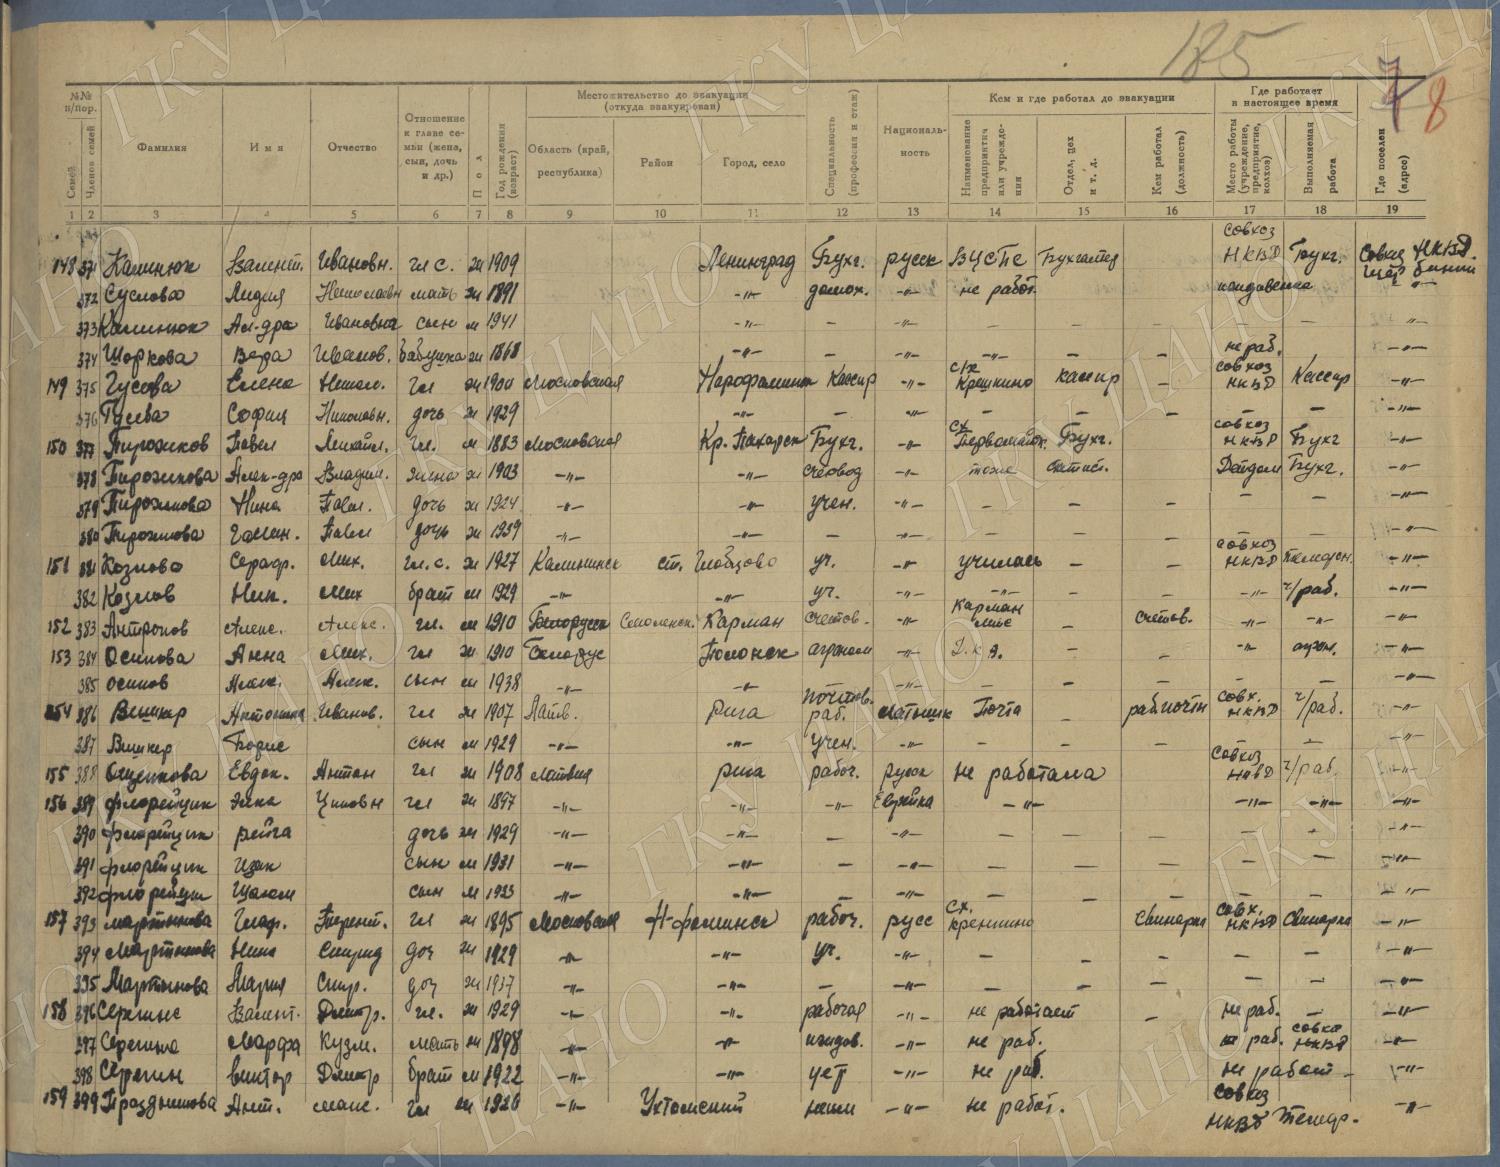 185
7 8
№№ п/пор.
Семей
Членов семей
Фамилия
Имя
Отчество
Отношение к главе семьи (жена, сын, дочь и др.)
Пол
Год рождения (возраст)
Местожительство до эвакуации (откуда эвакуирован)
Область (край, республика)
Район
Город, село
Специальность (профессия и стаж)
Националь-ность
Кем и где работал до эвакуации
Наименование предприятия или учреждения
Отдел, цех и т. д.
Кем работал (должность)
Где работает в настоящее время
Место работы (учреждение, предприятие, колхоз)
Выполняемая работа
Где поселен (адрес)
1 2 3 4 5 6 7 8 9 10 11 12 13 14 15 16 17 18 19
148 371 Калинюк Валент. Ивановн. гл с. ж 1909 Ленинград Бухг. русск ВЦСПС Бухгалтер совхоз НКВД Бухг. Совхоз НКВД.
372 Суслова Лидия Николаевн мать ж 1891 -"- домох. -"- не работ. иждивенка -"-
373 Калинюк Ал-др Ивановна сын м 1941 -"- – -"- – – – – -"-
374 Шоркова Вера Иванов. бабушка ж 1868 -"- – -"- -"- – – не раб. -"-
149 375 Гусева Елена Никол. гл ж 1900 Московская Нарофоминск Кассир -"- с/х Крекшино кассир – совхоз НКВД Кассир -"-
376 Гусева София Николаевн. дочь ж 1929 -"- – -"- – – – – – -"-
150 377 Пирожков Павел Михайл. гл. м 1883 Московская Кр. Пахорск Бухг. -"- сх Первомайск. Бухг. совхоз НКВД Бухг -"-
378 Пирожкова Алек-дра Владим. жена ж 1903 -"- -"- счетовод -"- тоже статист. Детдом Бухг. -"-
379 Пирожкова Нина Павл. дочь ж 1924 -"- -"- учен. -"- – – – – – -"-
380 Пирожкова Галин. Павл дочь ж 1939 -"- -"- – -"- – – – – – -"-
151 381 Козлова Сераф. Мих. гл. с. ж 1927 Калининск ст. уч. -"- училась – – совхоз НКВД -"-
382 Козлов Ник. Мих брат м 1929 -"- -"- уч. -"- -"- – – -"- ч/раб. -"-
152 383 Антропов Алекс. Алекс. гл. м 1910 Белорусск Смоленск. Карман счетов. -"- Карман – счетов. -"- -"- -"-
153 384 Осипова Анна Мих. гл ж 1910 Белорус Полоцск агроном -"- – – -"- агрон. -"-
385 Осипов Алек. Алек. сын м 1938 -"- -"- – -"- – – – – – -"-
154 386 Вишкер Антонина Иванов. гл ж 1907 Латв. Рига почтов. раб. латышк Почта – раб почты совх. НКВД ч/раб. -"-
387 Вишкер Борис сын м 1929 -"- -"- учен. -"- – – – – – -"-
155 388 Ощепкова Евдок. Антон гл ж 1908 Латвия Рига рабоч. русск не работала совхоз НКВД ч/раб. -"-
156 389 Флорейцик Элка гл ж 1897 -"- -"- -"- Еврейка -"- -"- -"- -"-
390 Флорейцик Рейга дочь ж 1929 -"- -"- – -"- – – – – – -"-
391 Флорейцик Изак сын м 1931 -"- -"- – -"- – – – – – -"-
392 Флорейцик сын м 1933 -"- -"- – -"- – – – – – -"-
157 393 Мартынова Глаф. Терент. гл ж 1895 Московская Н-Фоминск рабоч. русс сх. Крекшино свинарка совх. НКВД Свинарка -"-
394 Мартынова Нина Спирид доч ж 1929 -"- -"- уч. -"- – – – – – -"-
395 Мартынова Мария Спир. доч ж 1937 -"- -"- – -"- – – – – – -"-
158 396 Серегине Валент. Дмитр. гл. ж 1929 -"- -"- рабочая -"- не работает – не раб. – -"-
397 Серегина Марфа Кузм. мать ж 1898 -"- -"- иждив. -"- не раб. раб. совхоз НКВД -"-
398 Серегин Виктор Дмитр брат м 1922 -"- -"- -"- не раб. не работ – -"-
159 399 Празднikова Ант. гл ж 1920 -"- Ухтомский -"- не работ. совхоз НКВД -"-
ГКУ ЦАНО